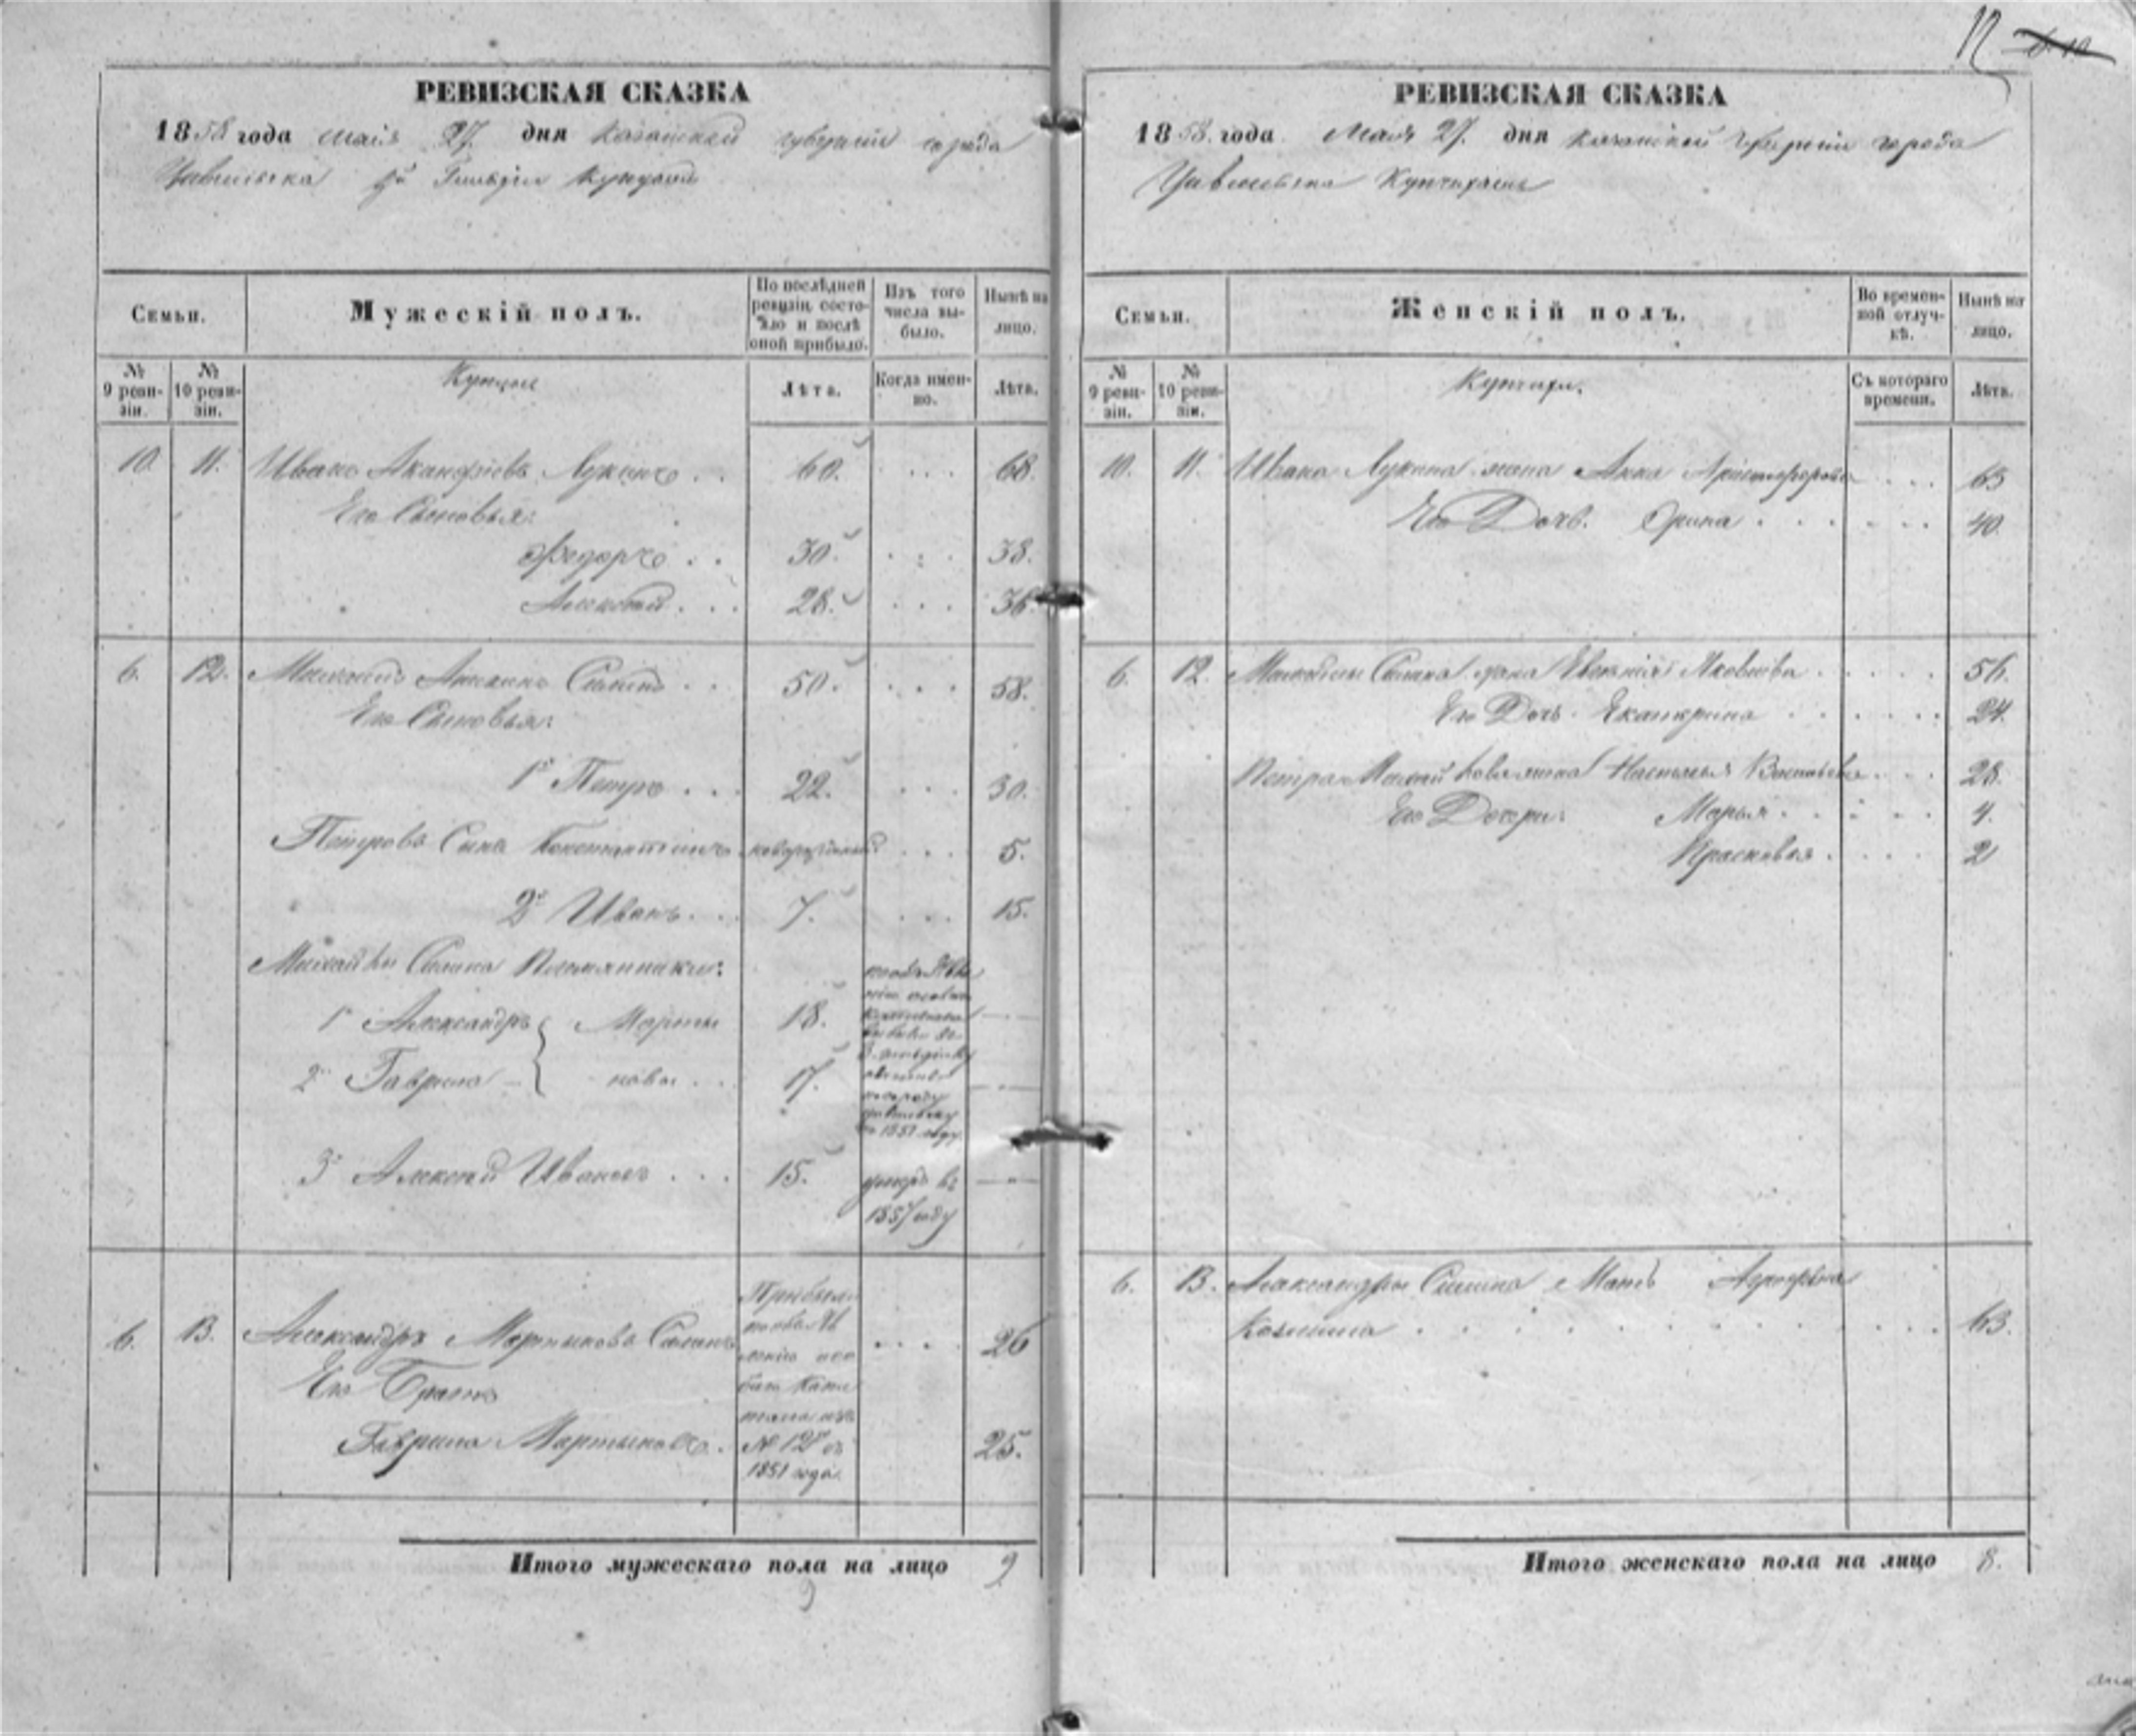 РЕВИЗСКАЯ СКАЗКА
1858 года мая 27. дня Казанской губернии города
Цивильска 3й Гильдии Купцовъ
Семьи.
Мужескій полъ.
По послѣдней ревизіи состояло и послѣ оной прибыло.
Изъ того числа выбыло.
Нынѣ на лицо.
№ 9 ревизіи.
№ 10 ревизіи.
Купцы
Лѣта.
Когда именно.
Лѣта.
10. 11. Иванъ Лукинъ . . 60. . . . 68.
Его Сыновья:
Федоръ . . 30. . . . 38.
Алексѣй . . . 28. . . . 36.
6. 12. Силинъ . . . 50. . . . 58.
Его Сыновья:
1й Петръ . . . 22. . . . 30.
Петровъ Сынъ Константинъ новорожденный . . . 5.
2й Иванъ . . . 7. . . . 15.
Силина Племянники:
1й Александръ { Марты 18.
2й Гаврила { новы . . . 17.
въ 1851 году
3й Алексѣй Ивановъ . . . 15. умеръ въ
1857 году
6. 13. Александръ Мартыновъ Силинъ . . . . 26
Его Братъ
Гаврила Мартыновъ . 25.
Прибыли
по объяв
ленію осо
баго Капи
тала изъ
№ 12го съ
1851 года
Итого мужескаго пола на лицо 9
9
12
РЕВИЗСКАЯ СКАЗКА
1858. года. Мая 27. дня Казанской Губерніи города
Цивильска Купчихамъ
Семьи.
Женскій полъ.
Во временной отлучкѣ.
Нынѣ на лицо.
№ 9 ревизіи.
№ 10 ревизіи.
Купчихи.
Съ котораго времени.
Лѣта.
10. 11. Ивана Лукина жена Анна . . . 65
Его Дочь. Орина . . . . . . . 40.
6. 12. Силина жена Евгенія Яковлева . . . . . 56.
Его Дочь Екатерина . . . . . . 24.
Петра жена Настасья Васильева . . . 28.
Его Дочери: Марья . . . . . . 4.
Прасковья . . . . 2
6. 13. Александры Силина Мать
Козмина . . . . . . . . . . . . 63.
Итого женскаго пола на лицо 8.